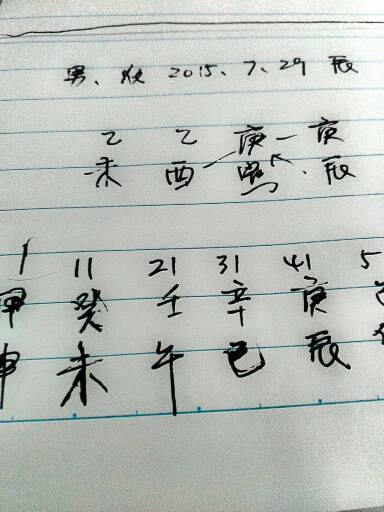 男、农 2015、7、29 辰
乙 乙 庚 — 庚
未 酉 寅 辰
1 11 21 31 41 5
甲 癸 壬 辛 庚
申 未 午 巳 辰